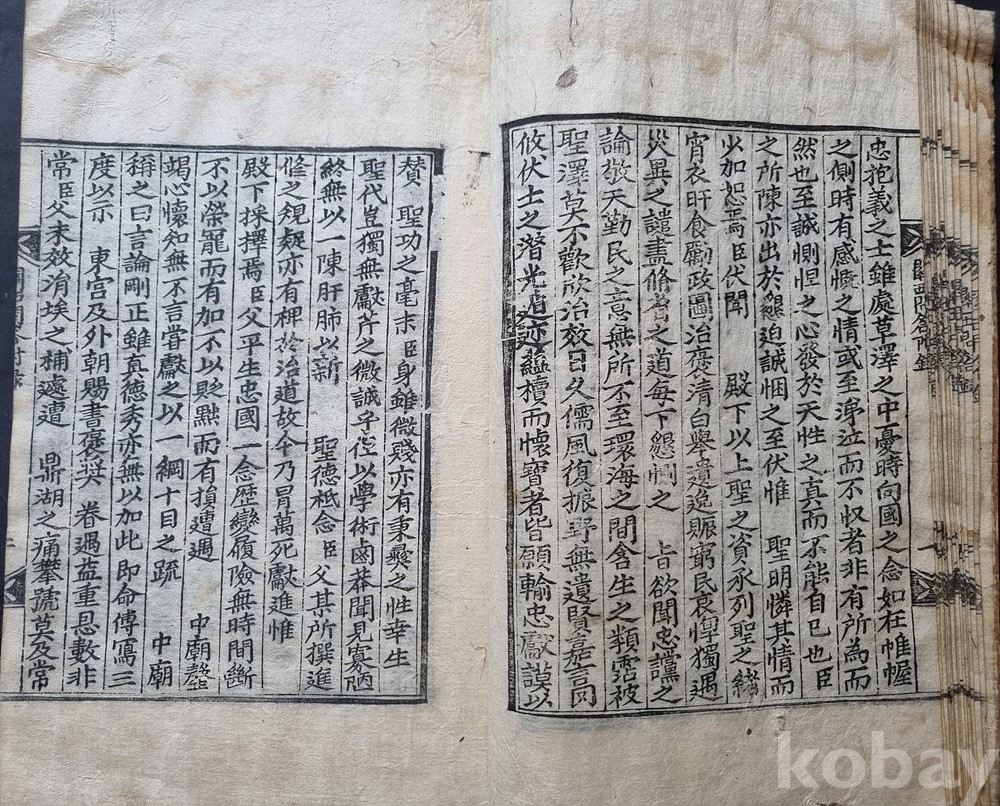 忠抱義之士雖處草澤之中憂時向國之念如在帷幄
之側時有感慨之情或至涕泣而不収者非有所為而
然也至誠惻怛之心發於天性之真而不能自已也臣
之所陳亦出於懇迫誠悃之至伏惟 聖明憐其情而
少加恕焉臣伏聞 殿下以上聖之資承列聖之緒
宵衣旰食勵政圖治褒清白舉遺逸賑窮民哀惸獨遇
災異之譴盡修省之道每下懇惻之 旨欲聞忠讜之
論敬天勤民之意無所不至環海之間含生之類霑被
聖澤莫不歡欣治效日久儒風復振野無遺賢嘉言罔
攸伏士之潛光遁迹蘊櫝而懷寶者皆願輸忠獻謨以
贊 聖功之毫末臣身雖微賤亦有秉彝之性幸生
聖代豈獨無獻芹之微誠乎徒以學術鹵莽聞見寡陋
終無以一陳肝肺以新 聖德祗念臣 父其所撰進
修之規疑亦有裨於治道故今乃冒萬死獻進惟
殿下採擇焉臣父平生忠國一念歷變履險無時間斷
不以榮寵而有加不以貶黜而有損遭遇 中廟罄
竭心懷知無不言嘗獻之以一綱十目之疏 中廟
稱之曰言論剛正雖真德秀亦無以加此即命傳寫三
度以示 東宮及外朝賜書褒奬 眷遇益重恩數非
常臣父未效涓埃之補遽遭 鼎湖之痛攀號莫及常
kobay